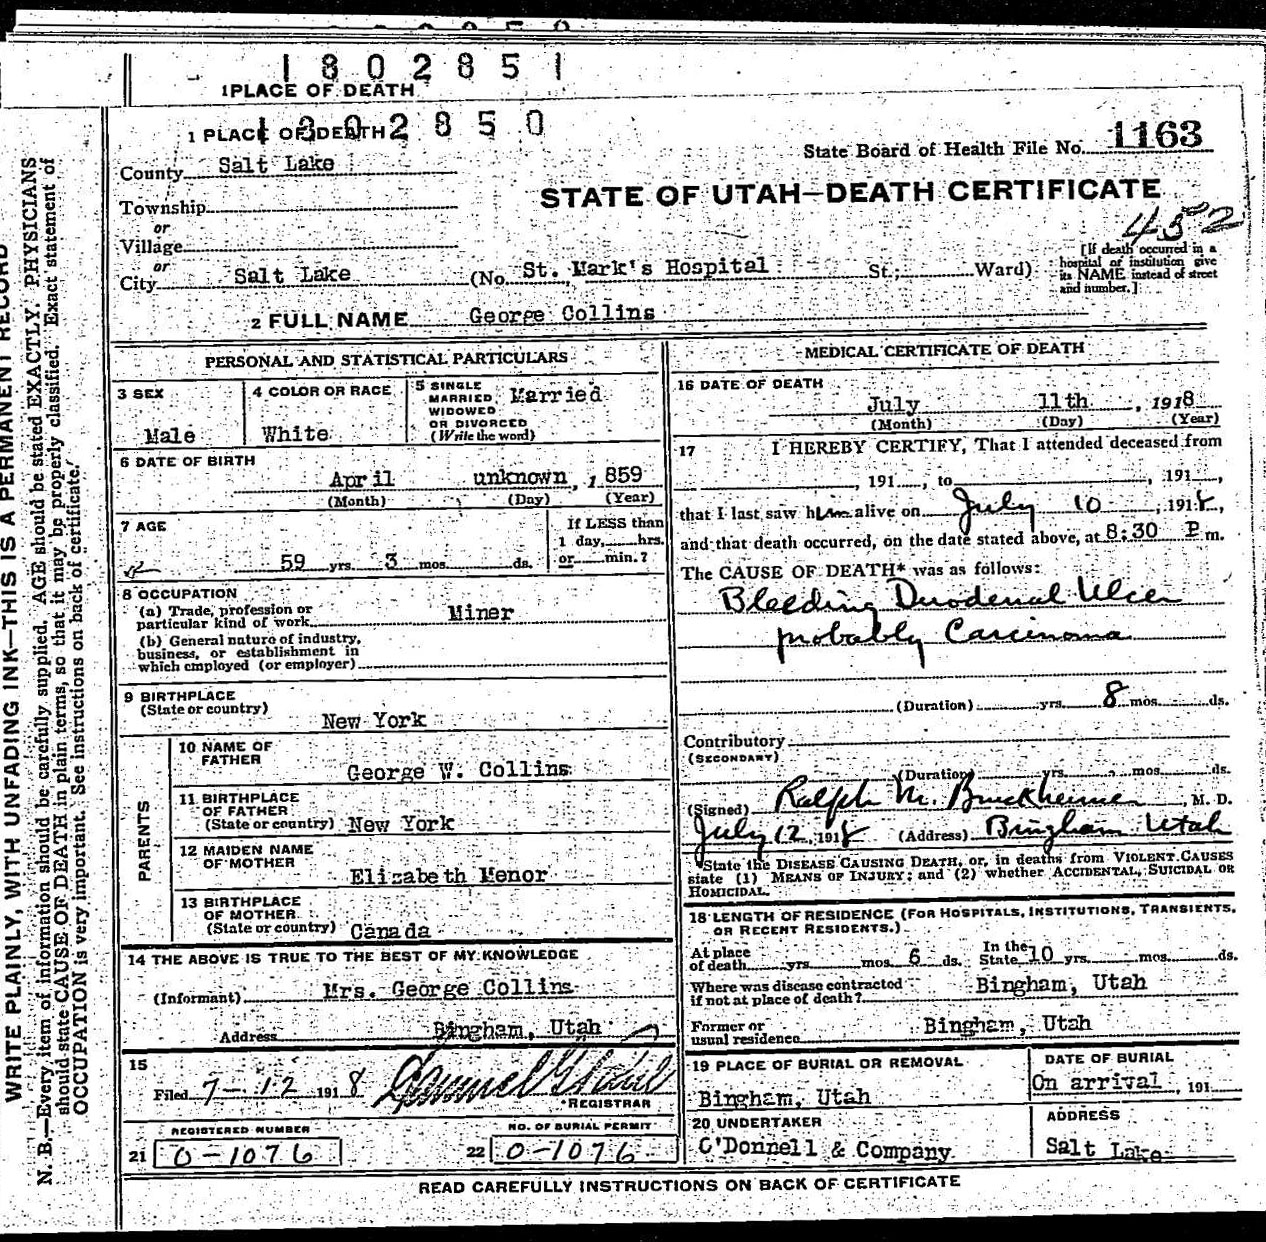 1802851
1 PLACE OF DEATH
1802850
1 PLACE OF DEATH
State Board of Health File No. 1163
County Salt Lake
STATE OF UTAH—DEATH CERTIFICATE
Township
452
or
Village
or
City Salt Lake (No. St. Mark's Hospital St.; Ward)
[If death occurred in a
hospital of institution give
its NAME instead of street
and number.]
2 FULL NAME George Collins
PERSONAL AND STATISTICAL PARTICULARS
3 SEX
Male
4 COLOR OR RACE
White
5 SINGLE
MARRIED
WIDOWED
OR DIVORCED
(Write the word)
Married
6 DATE OF BIRTH
April unknown, 1859
(Month) (Day) (Year)
7 AGE
59 yrs. 3 mos. ds.
If LESS than
1 day, hrs.
or min.?
8 OCCUPATION
(a) Trade, profession or
particular kind of work Miner
(b) General nature of industry,
business, or establishment in
which employed (or employer)
9 BIRTHPLACE
(State or country)
New York
PARENTS
10 NAME OF
FATHER
George W. Collins
11 BIRTHPLACE
OF FATHER
(State or country) New York
12 MAIDEN NAME
OF MOTHER
Elizabeth Menor
13 BIRTHPLACE
OF MOTHER
(State or country) Canada
14 THE ABOVE IS TRUE TO THE BEST OF MY KNOWLEDGE
(Informant) Mrs. George Collins
Address Bingham, Utah
15
Filed 7-12 1918
REGISTRAR
REGISTERED NUMBER
21 0-1076
NO. OF BURIAL PERMIT
22 0-1076
MEDICAL CERTIFICATE OF DEATH
16 DATE OF DEATH
July 11th, 1918
(Month) (Day) (Year)
17 I HEREBY CERTIFY, That I attended deceased from
, 191 , to , 191 ,
that I last saw him alive on July 10, 1918,
and that death occurred, on the date stated above, at 8:30 P m.
The CAUSE OF DEATH* was as follows:
Bleeding Duodenal Ulcer
probably Carcinoma
(Duration) yrs. 8 mos. ds.
Contributory
(SECONDARY)
(Duration) yrs. mos. ds.
(Signed) Ralph M. , M. D.
July 12, 1918 (Address) Bingham Utah
*State the DISEASE CAUSING DEATH, or, in deaths from VIOLENT CAUSES
state (1) MEANS OF INJURY; and (2) whether ACCIDENTAL, SUICIDAL OR
HOMICIDAL.
18 LENGTH OF RESIDENCE (FOR HOSPITALS, INSTITUTIONS, TRANSIENTS,
OR RECENT RESIDENTS.)
At place
of death yrs. mos. 6 ds.
In the
State 10 yrs. mos. ds.
Where was disease contracted
if not at place of death? Bingham, Utah
Former or
usual residence Bingham, Utah
19 PLACE OF BURIAL OR REMOVAL
Bingham, Utah
DATE OF BURIAL
On arrival, 191
20 UNDERTAKER
O'Donnell & Company
ADDRESS
Salt Lake
READ CAREFULLY INSTRUCTIONS ON BACK OF CERTIFICATE
WRITE PLAINLY, WITH UNFADING INK—THIS IS A PERMANENT RECORD
N. B.—Every item of information should be carefully supplied. AGE should be stated EXACTLY. PHYSICIANS
should state CAUSE OF DEATH in plain terms, so that it may be properly classified. Exact statement of
OCCUPATION is very important. See instructions on back of certificate.